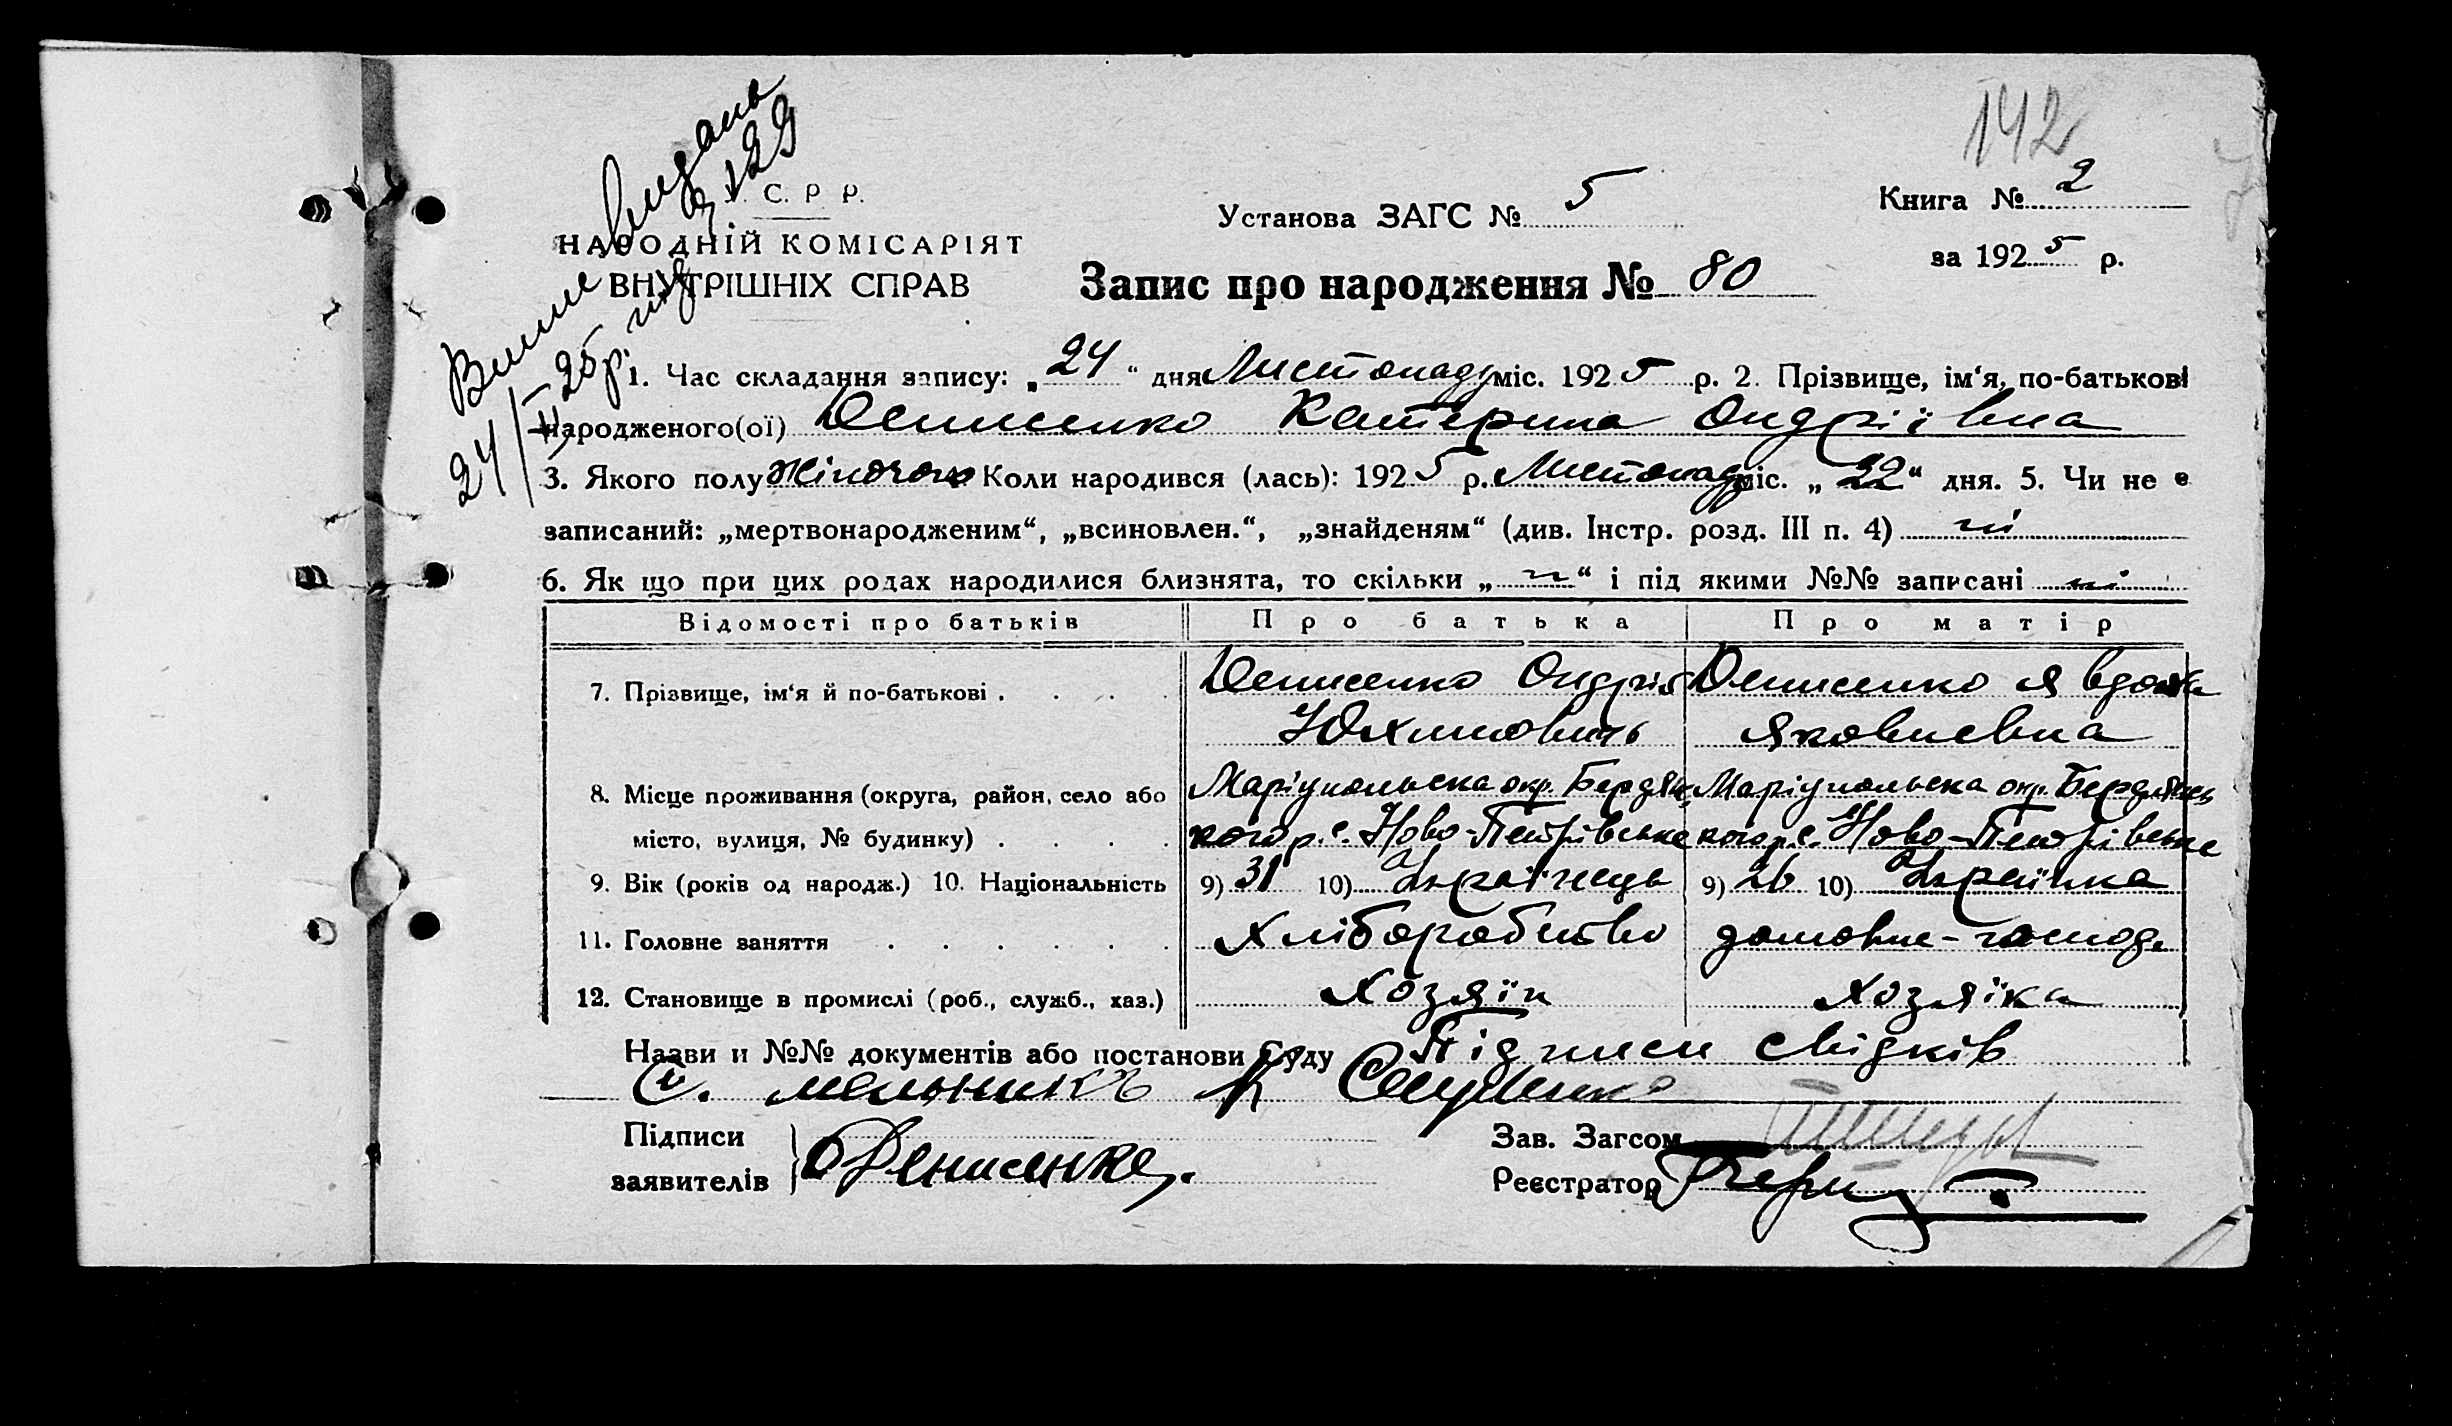 142
Випис видано
24/XI 25 р. під № 129
С. Р. Р.
НАРОДНІЙ КОМІСАРІЯТ
ВНУТРІШНІХ СПРАВ
Установа ЗАГС № 5
Книга № 2
за 1925 р.
Запис про народження № 80
1. Час складання запису: „24“ дня Листопаду міс. 1925 р. 2. Прізвище, ім‘я, по-батькові
народженого(ої) Денисенко Катерина Ондріївна
3. Якого полу жіночого Коли народився (лась): 1925 р. Листопаду міс. „22“ дня. 5. Чи не є
записаний: „мертвонародженим“, „всиновлен.“, „знайденям“ (див. Інстр. розд. III п. 4) ні
6. Як що при цих родах народилися близнята, то скільки „н“ і під якими №№ записані ні
Відомості про батьків Про батька Про матір
7. Прізвище, ім‘я й по-батькові . . . . Денисенко Ондрій Денисенко Явдоха
Юхимовичь Яковлевна
8. Місце проживання (округа, район, село або Маріупольска окр. Бердянс Маріупольска окр. Бердянсь
місто, вулиця, № будинку) . . . . кого р. с. Ново-Петрівське кого р. с. Ново-Петрівське
9. Вік (років од народж.) 10. Національність 9) 31 10) Українець 9) 26 10) Українка
11. Головне заняття . . . . . . Хліборобство домовне-господ.
12. Становище в промислі (роб., служб., хаз.) Хозяїн Хозяїка
Назви и №№ документів або постанови Суду Підписи свідків
С. мельникъ К
Підписи
заявителів О Денисенко.
Зав. Загсом
Реєстратор